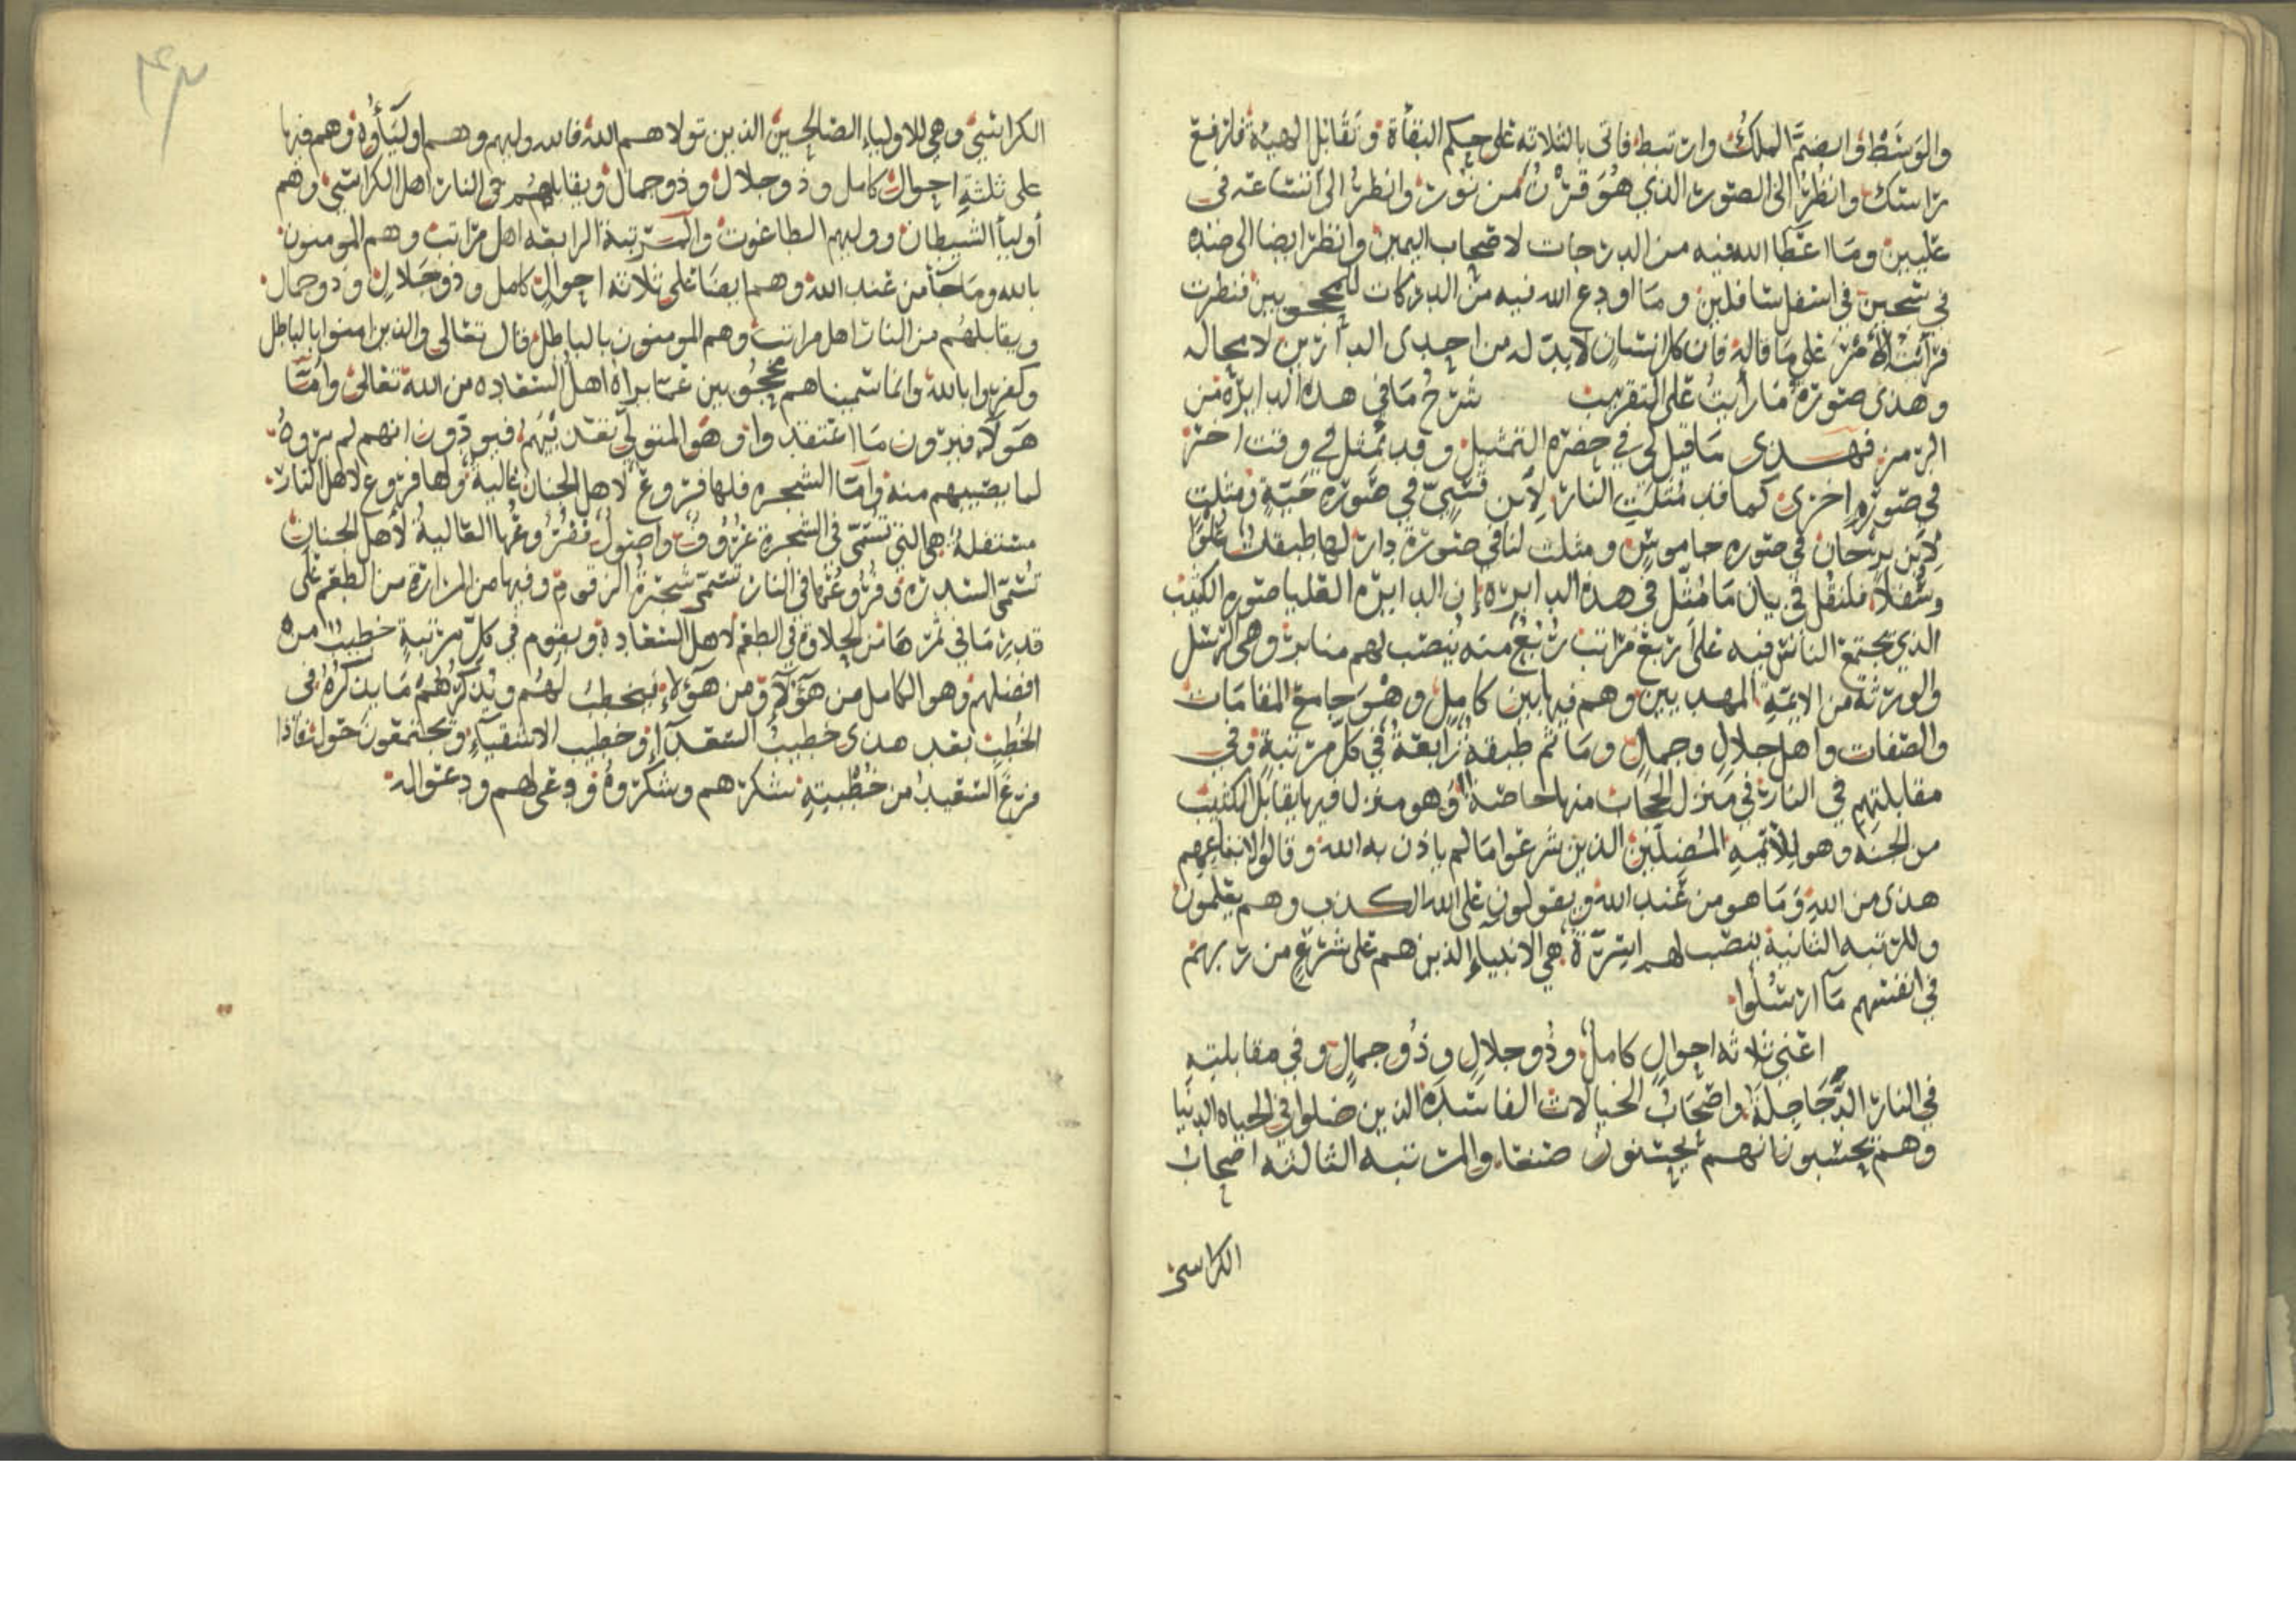 والوسط وانضم الملك وارتبط فاتى بالثلاثه على حكم النشأة وتقابل الهيئة فلترفع
راسك وانظر الى الصور الذي هو قرن من نور وانظر الى اتساعه في
عليين وما اعطا الله فيه من الدرجات لاصحاب اليمين وانظر ايضا الى ضده
في سجين في اسفل سافلين وما اودع الله فيه من الدركات للمحجوبين فنظرت
فرأيت الأمر على ما قاله فان كل انسان لابد له من احدى الدارين لا محاله
وهذي صورة ما رأيت على التقريب شرح ما في هذه الدايرة من
الرمز فهذى ما قيل لي في حضره التمثيل وقد تمثل في وقت اخر
في صورة اخرى كما قد مثلت النار لابن قسي في صورة حية ومثلت
لابن برجان في صوره جاموس ومثلت لنا في صورة دار لها طبقات علوا
وسفلا فلنقل في بيان ما مثل في هذه الدايره إن الدايره العليا صوره الكثيب
الذي يجتمع الناس فيه على اربع مراتب ربع منه ينصب لهم منابر وهي الرسل
والورثة من الايمة المهديين وهم فيها بين كامل وهو جامع المقامات
والصفات واهل جلال وجمال وما ثم طبقة رابعة في كل مرتبة وفي
مقابلتهم في النار في منزل الحجاب منها خاصة وهو منزل فيها يقابل الكثيب
من الجنه وهو للأئمه المضلين الذين شرعوا ما لم ياذن به الله وقالوا لاتباعهم
هذى من الله وما هو من عند الله ويقولون على الله الكذب وهم يعلمون
وللرتبه الثانية ينصب لهم اسرة هي الانبياء الذين هم على شرع من ربهم
في انفسهم ما ارسلوا
اعني ثلاثه احوال كامل وذو جلال وذو جمال وفي مقابلته
في النار الدجاجلة واصحاب الخيالات الفاسده الذين ضلوا في الحياه الدنيا
وهم يحسبون انهم يحسنون صنعا والمرتبه الثالثه اصحاب
الكراسي
الكراسي وهي للاولياء الصالحين الذين تولاهم الله فالله وليهم وهم اولياؤه وهم فيها
على ثلثة احوال كامل وذو جلال وذو جمال ويقابلهم في النار اهل الكراسي وهم
أولياأ الشيطان ووليهم الطاغوت والمرتبة الرابعه اهل مراتب وهم المومنون
بالله وما جآ من عند الله وهم ايضا على ثلاثه احوال كامل وذو جلال وذو جمال
ويقابلهم من النار اهل مراتب وهم المومنون بالباطل قال تعالى والذين امنوا بالباطل
وكفروا بالله وانما سميناهم محجوبين عما يراه اهل السعاده من الله تعالى وامّا
هولآ فيرون ما اعتقدوا وهو المتولي تعذيبهم فيودون انهم لم يروه
لما يصيبهم منه وامّا الشجره فلها فروع لاهل الجنان عالية ولها فروع لاهل النار
مستفلة هي التي تسمى في الشجرة عروق واصول ففروعها العالية لأهل الجنان
تسمى السدره وفروعها في النار تسمى شجرة الزقوم وفيها من المرارة من الطعم على
قدر ما في ثمرها من الحلاوة في الطعم لاهل السعادة ويقوم في كل مرتبة خطيب من
افضلهم وهو الكامل من هؤلآ ومن هؤلاء فيخطب لهم ويذكرهم ما يذكره في
الخطب بعد هذى خطيب السعدآ وخطيب الاشقيآء ويجتمعون حوله فاذا
فرغ السعيد من خطبته شكرهم وشكروه ودعى لهم ودعوا له